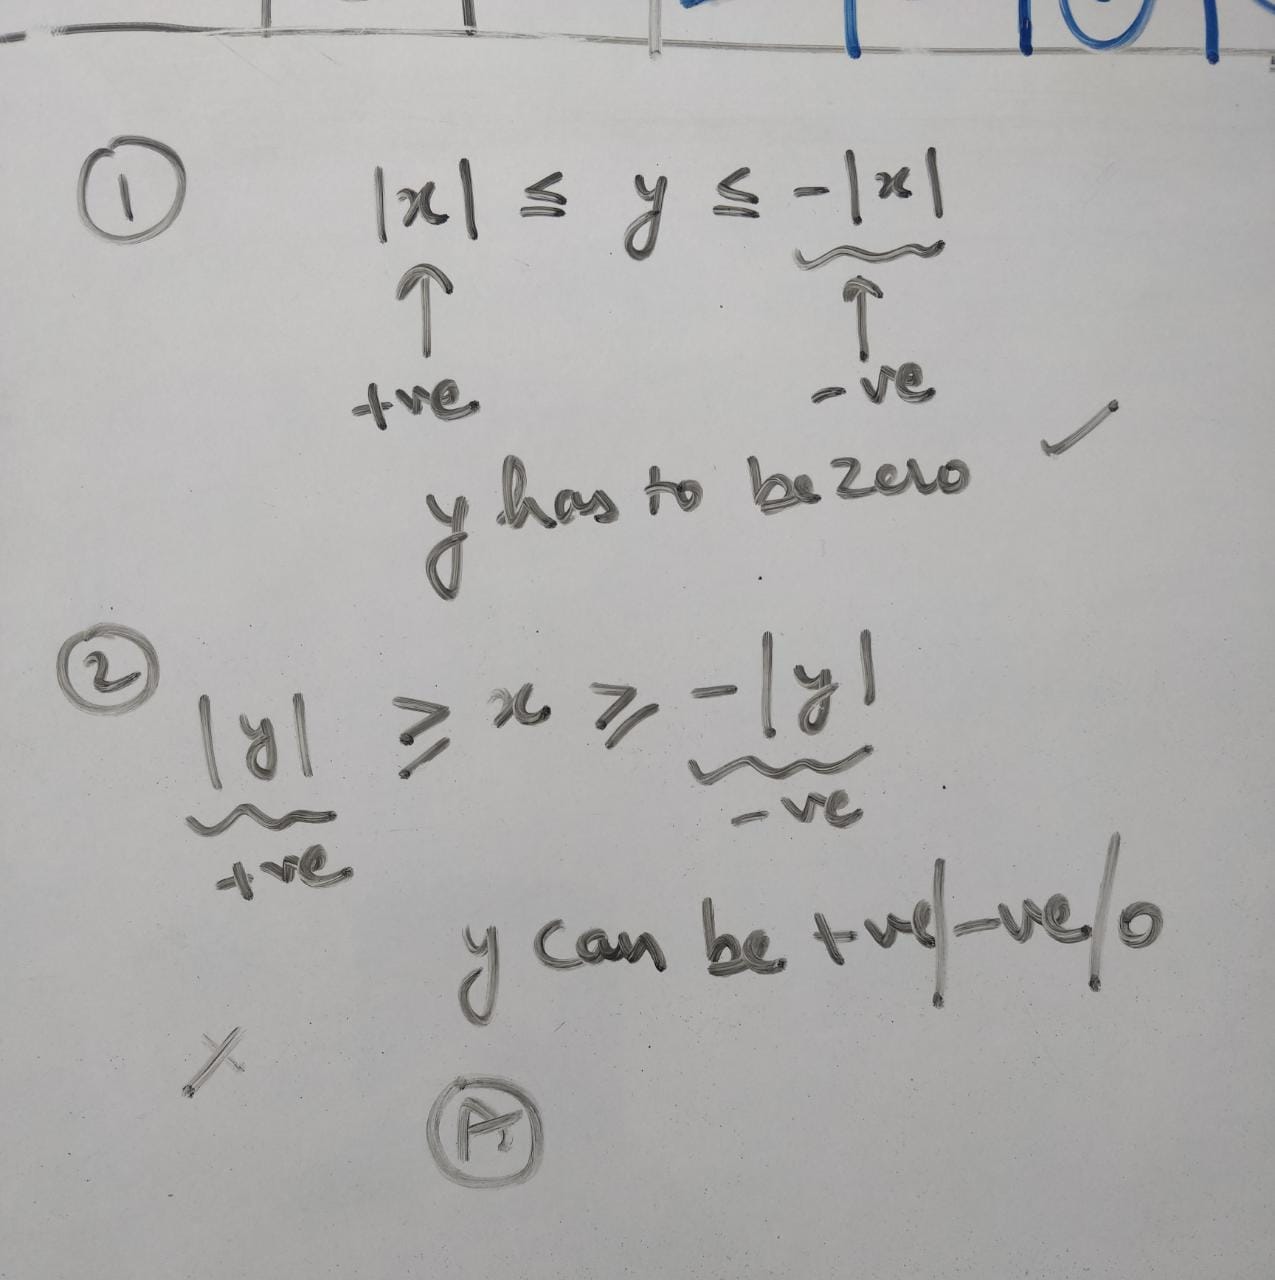 ① |x| ≤ y ≤ -|x|
↑ ↑
+ve -ve
y has to be zero ✓
② |y| ≥ x ≥ -|y|
+ve -ve
y can be +ve/-ve/0
Ⓐ